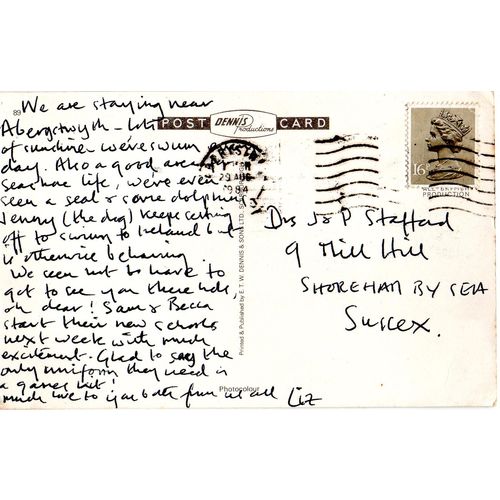 89
We are staying near
Aberystwyth - lots
of sunshine we've swum
POST DENNIS Productions CARD
day. Also a good area
sea shore life, we've even
seen a seal & some dolphins
Jenny (the dog) keeps setting
off to swim to Ireland but
is otherwise behaving.
We seem not to have to
got to see you these hols,
oh dear! Sam & Becca
start their new schools
next week with much
excitement. Glad to say the
only uniform they need is
a games kit!
much love to you both from us all Liz
29 AUG
1984
16
PRODUCTION
Drs J & P Stafford
9 Mill Hill
SHOREHAM BY SEA
Sussex.
Printed & Published by E. T. W. DENNIS & SONS LTD.
Photocolour